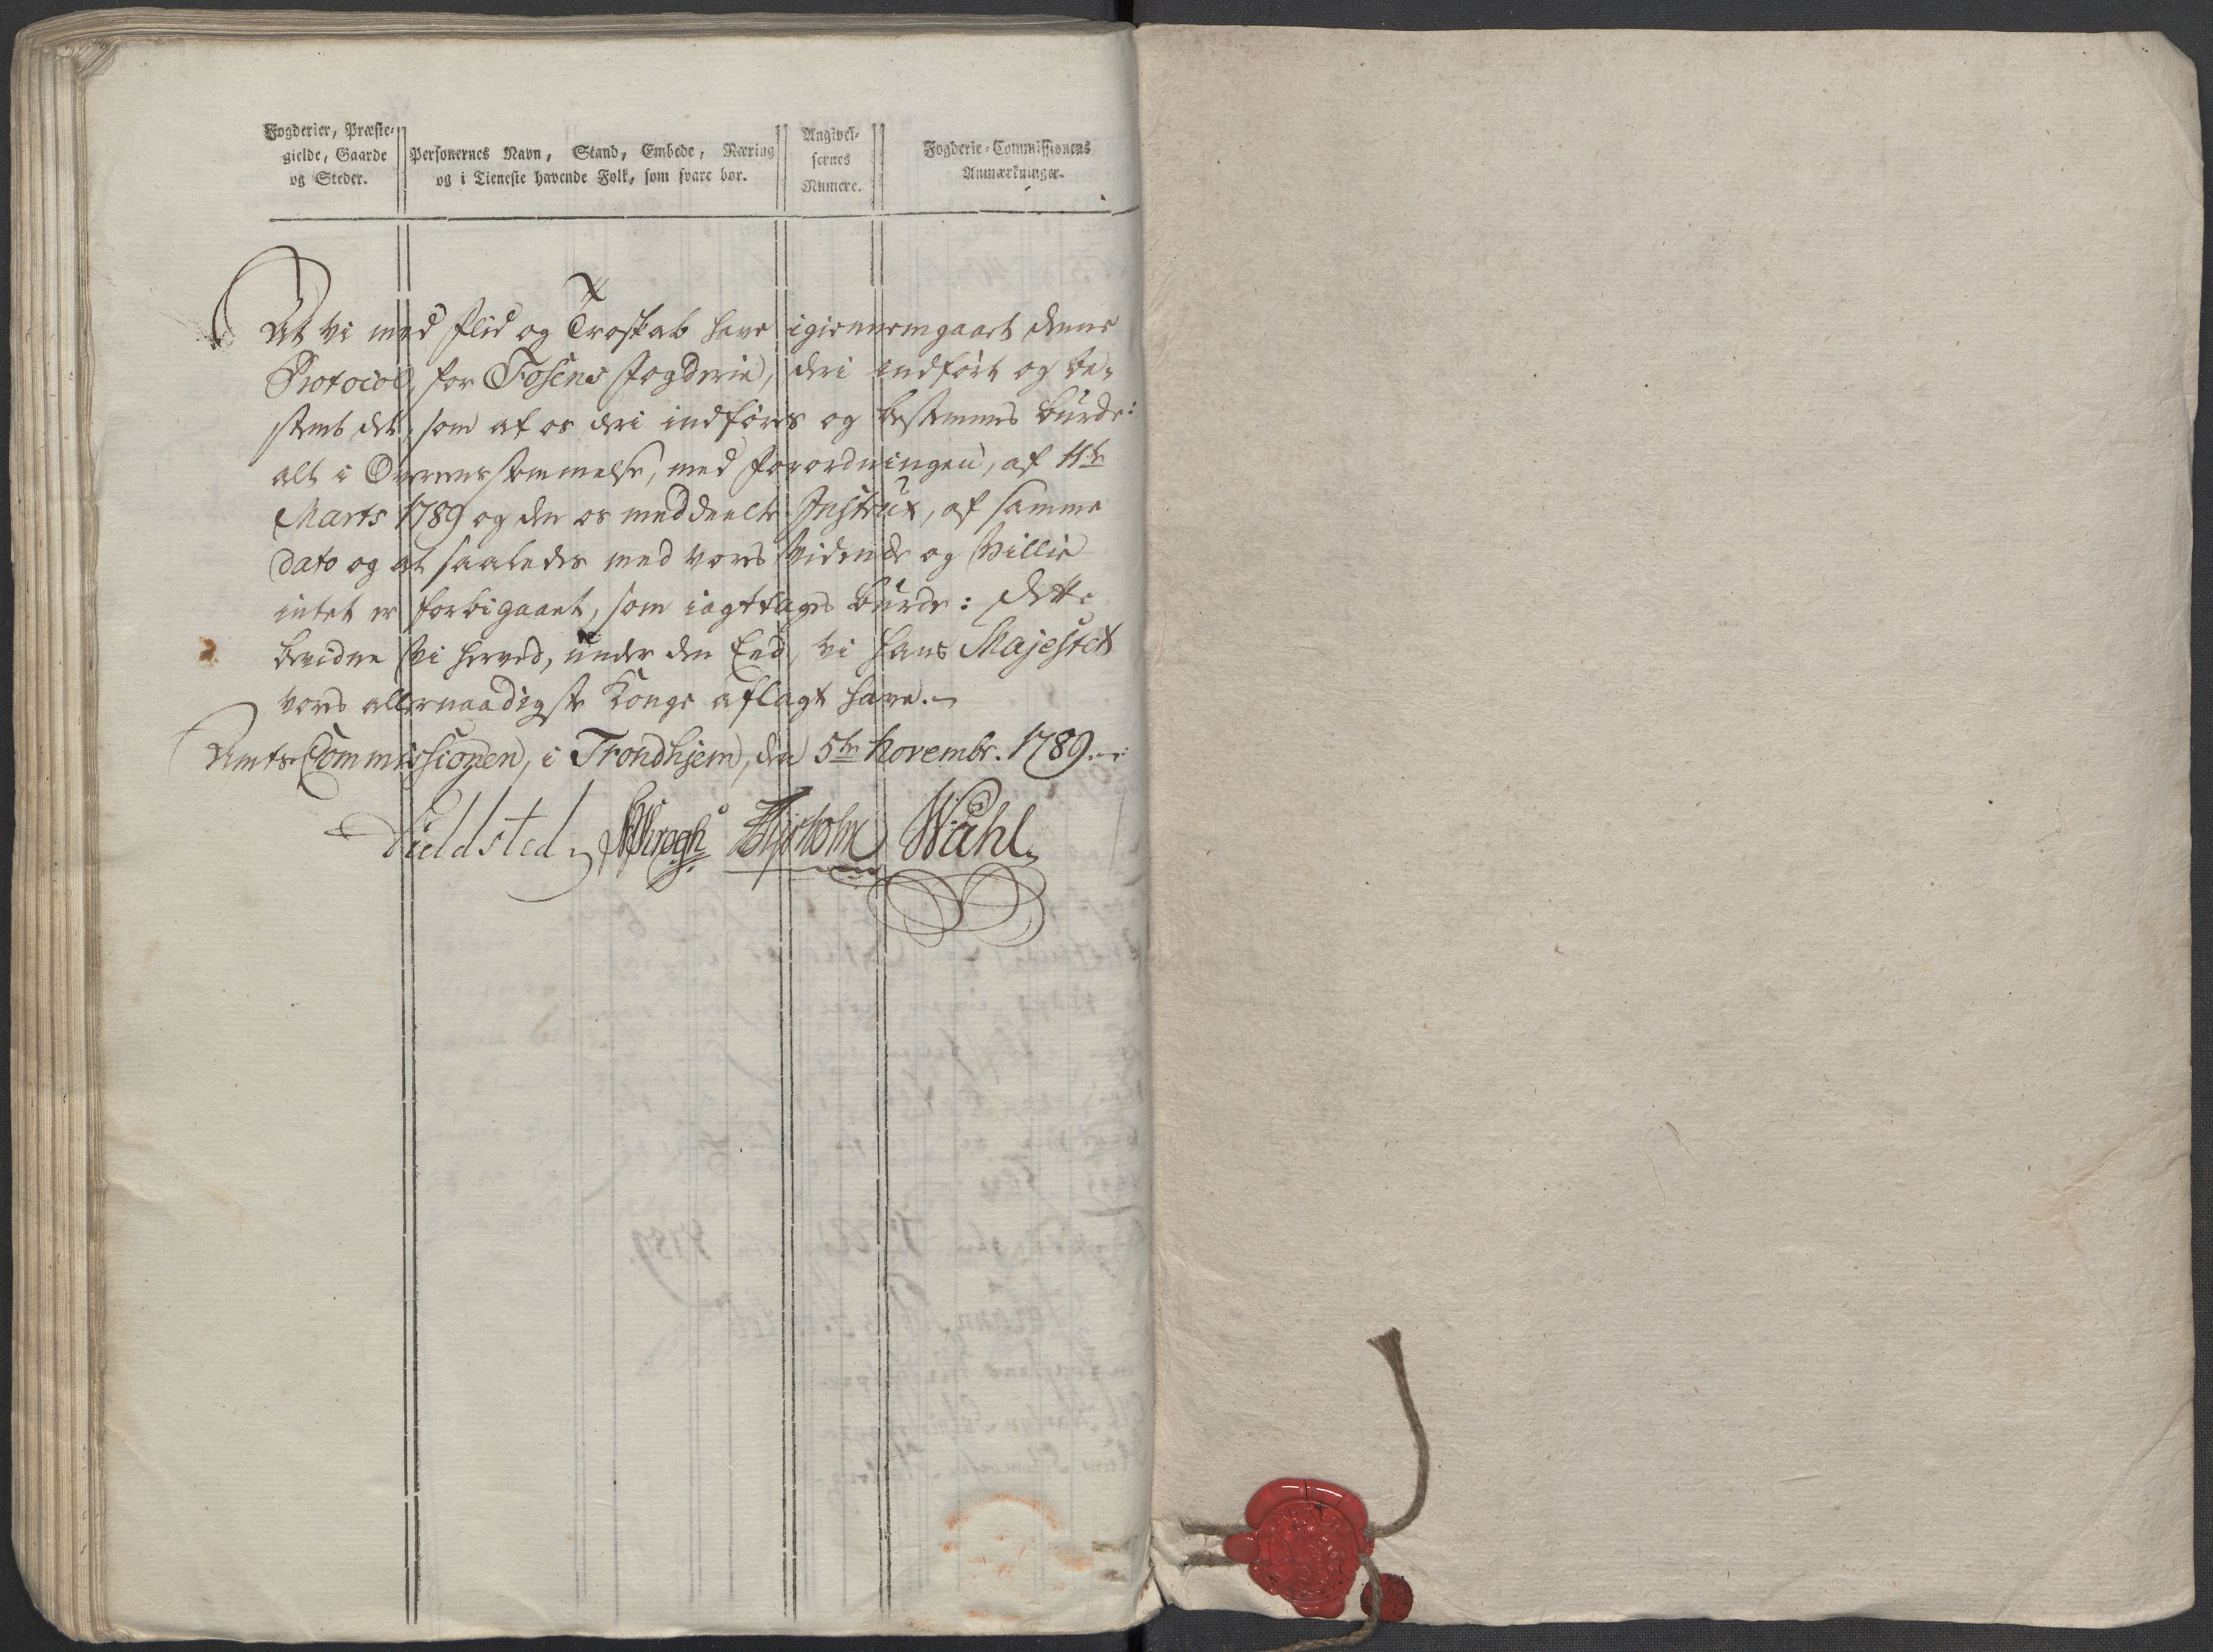 Fogderier, Præste-
gielde, Gaarde
og Steder.
Personernes Navn, Stand, Embede, Næring
og i Tieneste havende Folk, som svare bør.
Angivel-
sernes
Numere.
Fogderie-Commissionens
Anmærkninger.
At vi med Flid og Troskab have igiennemgaaet denne
Protocol, for Fosens Fogderie, deri indført og be-
stemt det, som af os deri indføres og bestemmes burde:
alt i Overensstemmelse, med Forordningen, af 11te
Marts 1789 og den os meddeelte Instrux, af samme
dato og at saaledes med vores Vidende og Villie
intet er forbigaaet, som iagttages burde: Dette
bevidne vi herved, under den Eed, vi Hans Majestet
vores allernaadigste Konge aflagt have.
Amts-Commissionen, i Trondhjem, den 5te Novembr. 1789.
Hieldsted Krogh Wahl